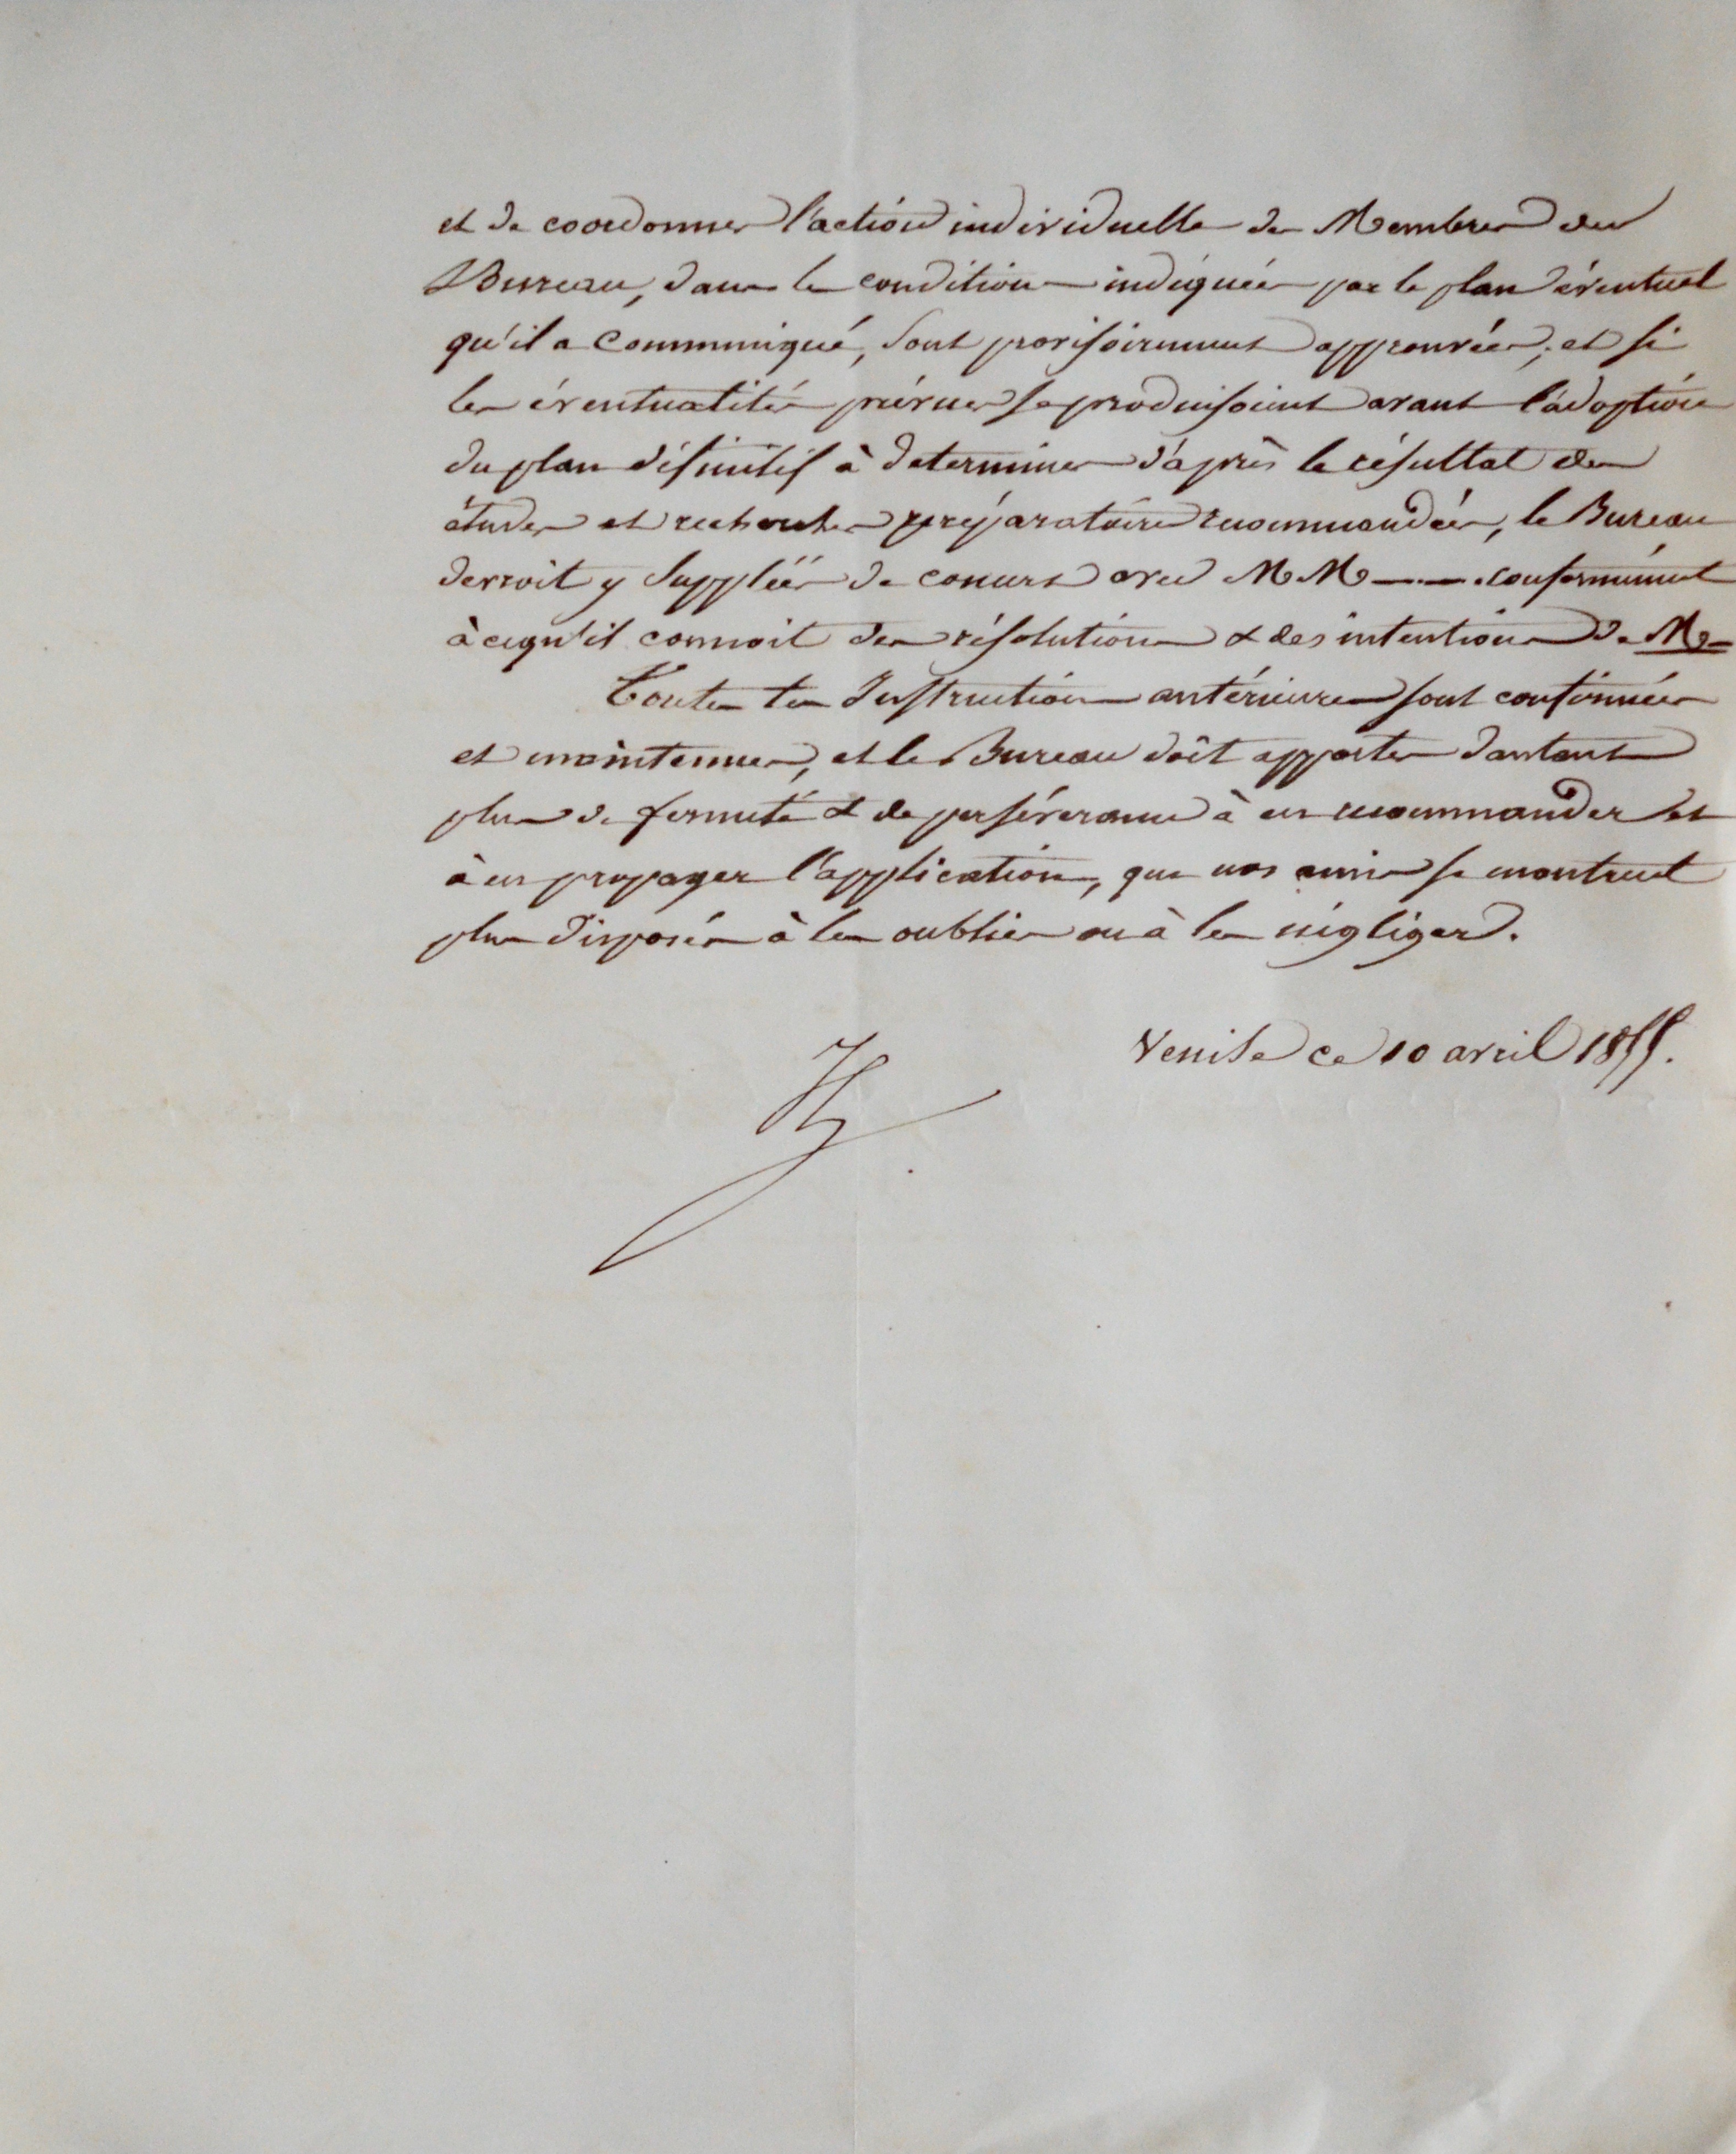 et de coordonner l'action individuelle des Membres du
Bureau, dans les conditions indiquées par le plan éventuel
qu'il a communiqué, sont provisoirement approuvées; et si
les éventualités prévues se produisoient avant l'adoption
du plan définitif à determiner d'après le résultat des
études et recherches préparatoires recommandées, le Bureau
devroit y suppléer de concert avec MM —.— conformément
à ce qu'il connoit des résolutions & des intentions de M—
Toutes les Instructions antérieures sont confirmées
et maintenues, et le Bureau doit apporter d'autant
plus de fermeté & de persévérance à en recommander et
à en propager l'application, que nos amis se montrent
plus disposés à les oublier ou à les négliger.
Venise ce 10 avril 1855.